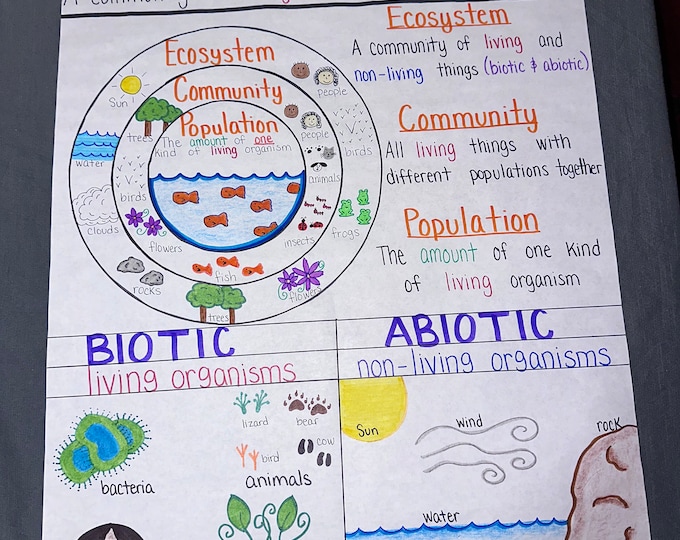 Ecosystem
A community of living and
non-living things (biotic & abiotic)
Community
All living things with
different populations together
Population
The amount of one kind
of living organism
Ecosystem
Community
Population
The amount of one
kind of living organism
Sun
people
trees
people
birds
water
animals
birds
clouds
flowers
insects
frogs
rocks
fish
flowers
trees
BIOTIC
living organisms
bacteria
lizard
bear
bird
cow
animals
ABIOTIC
non-living organisms
Sun
wind
rock
water